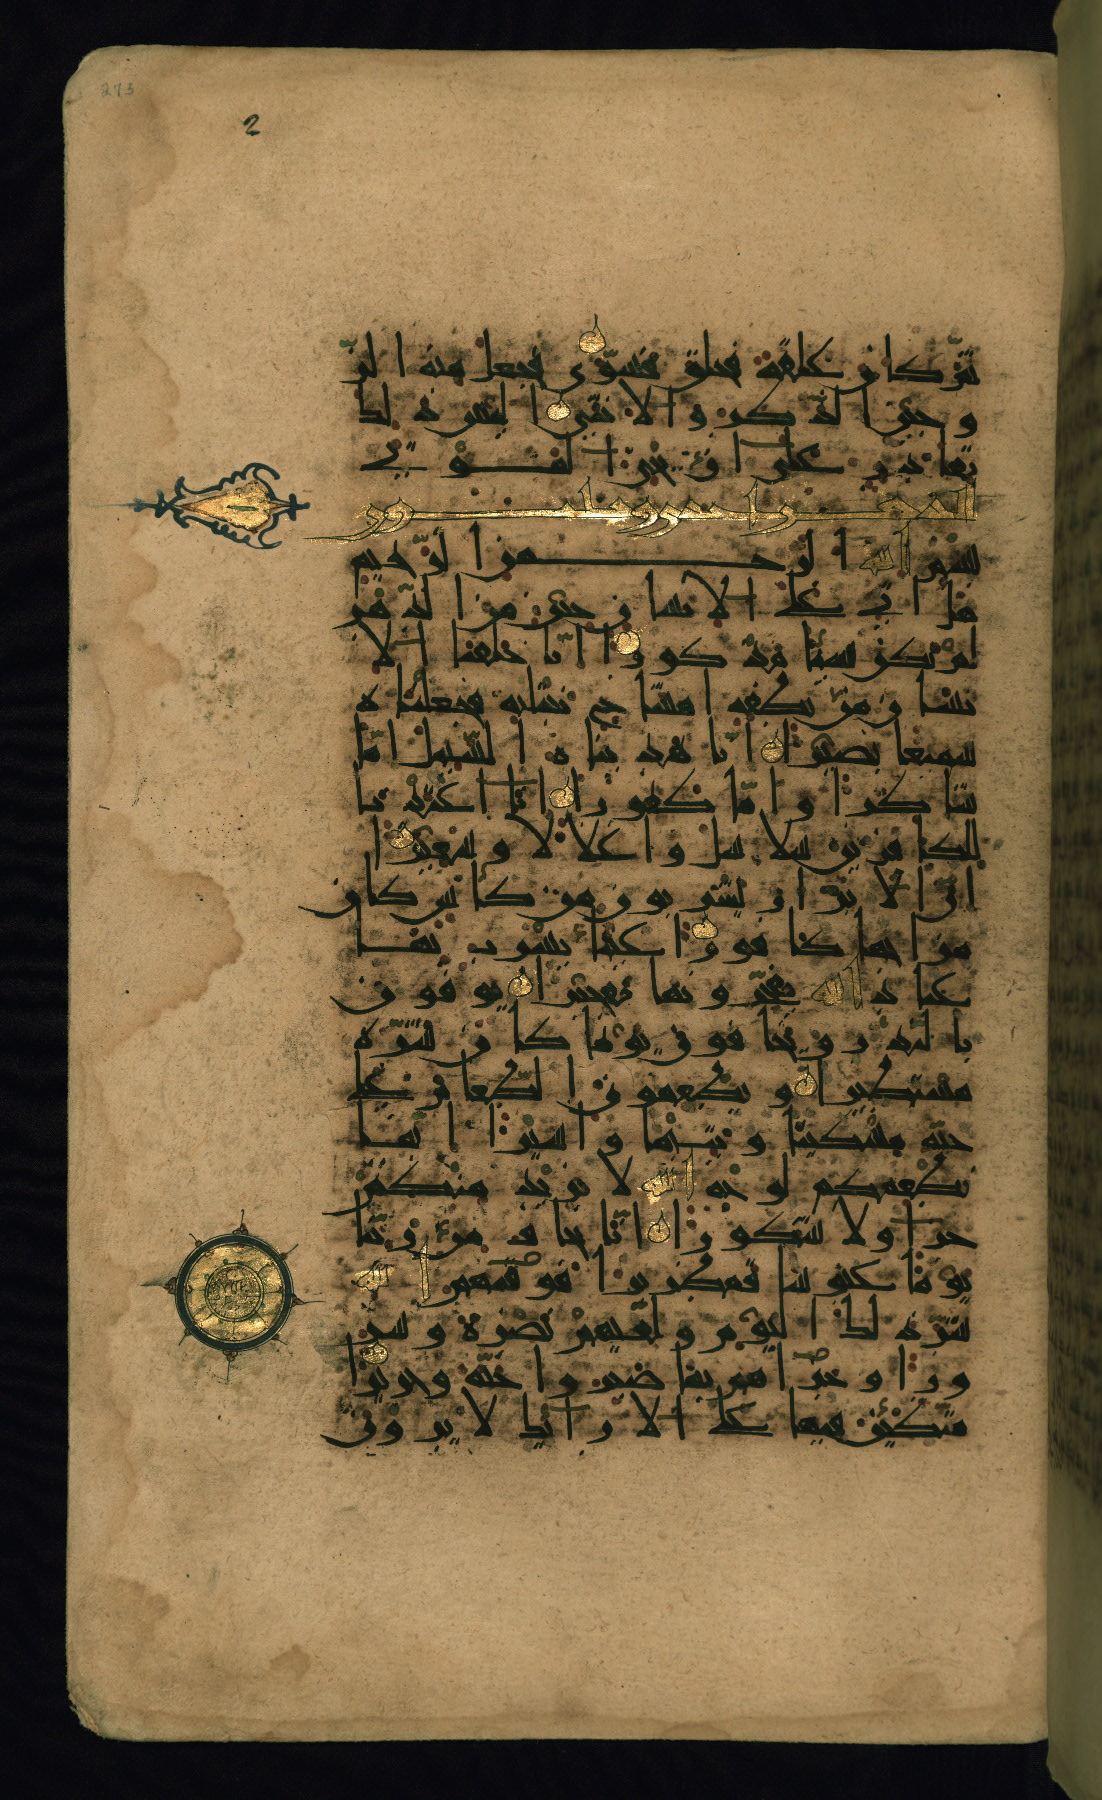 273
2
ثم كان علقة فخلق فسوى فجعل منه الز
وجين الذكر والانثى اليس ذلك
بقادر على ان يحي الموتى
بسم الله الرحمن الرحيم
هل اتى على الانسان حين من الدهر
لم يكن شيئا مذكورا انا خلقنا الا
نسان من نطفة امشاج نبتليه فجعلناه
سميعا بصيرا انا هديناه السبيل اما
شاكرا واما كفورا انا اعتدنا
للكافرين سلاسل واغلالا وسعيرا
ان الابرار يشربون من كأس كان
مزاجها كافورا عينا يشرب بها
عباد الله يفجرونها تفجيرا يوفون
بالنذر ويخافون يوما كان شره
مستطيرا ويطعمون الطعام على
حبه مسكينا ويتيما واسيرا انما
نطعمكم لوجه الله لا نريد منكم
جزا ولا شكورا انا نخاف من ربنا
يوما عبوسا قمطريرا فوقيهم الله
شر ذلك اليوم ولقيهم نضرة وسر
ورا وجزاهم بما صبروا جنة وحريرا
متكئين فيها على الارائك لا يرون